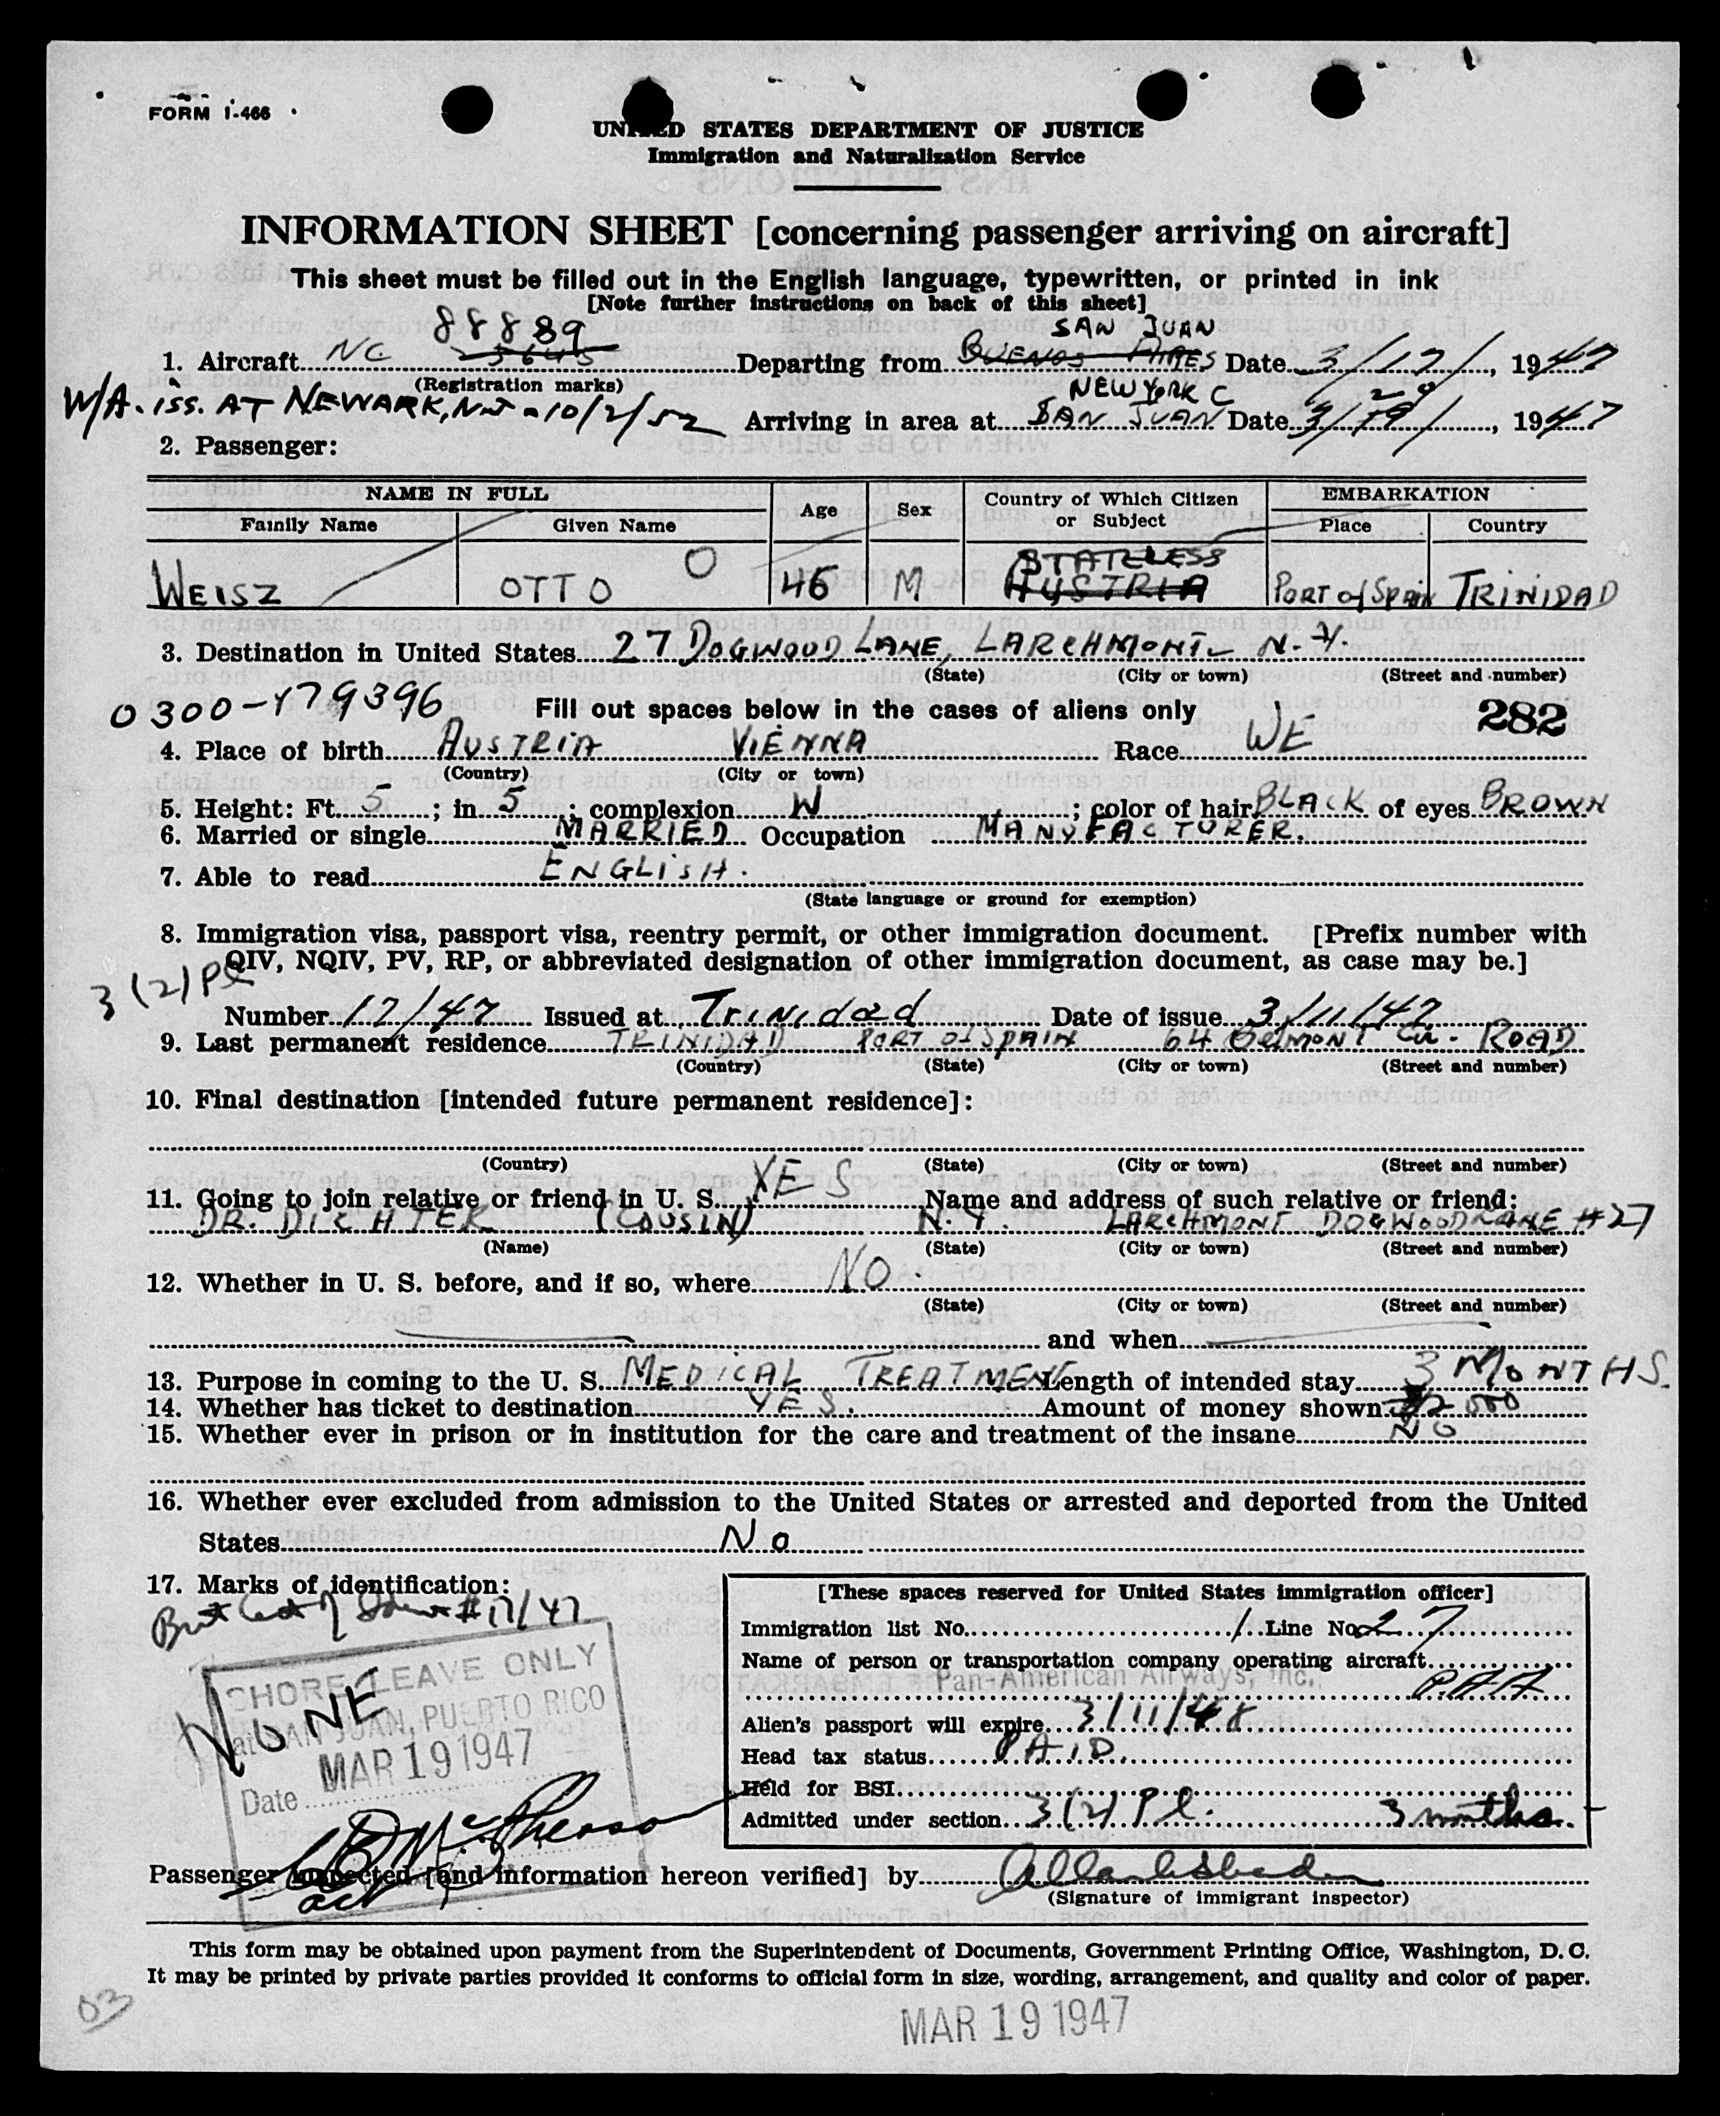 FORM I-466
UNITED STATES DEPARTMENT OF JUSTICE
Immigration and Naturalization Service
INFORMATION SHEET [concerning passenger arriving on aircraft]
This sheet must be filled out in the English language, typewritten, or printed in ink
[Note further instructions on back of this sheet]
88889 SAN JUAN
1. Aircraft NC Departing from BUENOS AIRES Date 3/17/, 1947
(Registration marks) NEW YORK C 20
W/A. iss. AT NEWARK, N.J. - 10/2/52 Arriving in area at SAN JUAN Date 3/19/, 1947
2. Passenger:
NAME IN FULL Age Sex Country of Which Citizen or Subject EMBARKATION
Family Name Given Name Place Country
STATELESS
WEISZ OTTO O 46 M AUSTRIA PORT of SPAIN TRINIDAD
3. Destination in United States 27 DOGWOOD LANE, LARCHMONT - N.Y.
(State) (City or town) (Street and number)
0300-179396 Fill out spaces below in the cases of aliens only 282
4. Place of birth AUSTRIA VIENNA Race WE
(Country) (City or town)
5. Height: Ft. 5; in. 5; complexion W; color of hair BLACK of eyes BROWN
6. Married or single MARRIED Occupation MANUFACTURER.
7. Able to read ENGLISH.
(State language or ground for exemption)
8. Immigration visa, passport visa, reentry permit, or other immigration document. [Prefix number with
QIV, NQIV, PV, RP, or abbreviated designation of other immigration document, as case may be.]
3(2)Pl
Number 17/47 Issued at Trinidad Date of issue 3/11/47
9. Last permanent residence TRINIDAD PORT of SPAIN 64 BELMONT Cir. ROAD
(Country) (State) (City or town) (Street and number)
10. Final destination [intended future permanent residence]:
(Country) (State) (City or town) (Street and number)
11. Going to join relative or friend in U. S. YES Name and address of such relative or friend:
DR. DICHTER (COUSIN) N.Y. LARCHMONT DOGWOOD LANE #27
(Name) (State) (City or town) (Street and number)
12. Whether in U. S. before, and if so, where NO.
(State) (City or town) (Street and number)
and when
13. Purpose in coming to the U. S. MEDICAL TREATMENT Length of intended stay 3 MONTHS.
14. Whether has ticket to destination YES. Amount of money shown $2000
15. Whether ever in prison or in institution for the care and treatment of the insane NO
16. Whether ever excluded from admission to the United States or arrested and deported from the United
States No
17. Marks of identification:
#17/47
NONE
SHORE LEAVE ONLY
at SAN JUAN, PUERTO RICO
MAR 19 1947
Date
[These spaces reserved for United States immigration officer]
Immigration list No. 1 Line No. 27
Name of person or transportation company operating aircraft
Pan-American Airways, Inc. P.A.A
Alien's passport will expire 3/11/48
Head tax status PAID.
Held for BSI
Admitted under section 3(2) Pl. 3 months.
Passenger inspected [and information hereon verified] by
(Signature of immigrant inspector)
This form may be obtained upon payment from the Superintendent of Documents, Government Printing Office, Washington, D. C.
It may be printed by private parties provided it conforms to official form in size, wording, arrangement, and quality and color of paper.
03
MAR 19 1947